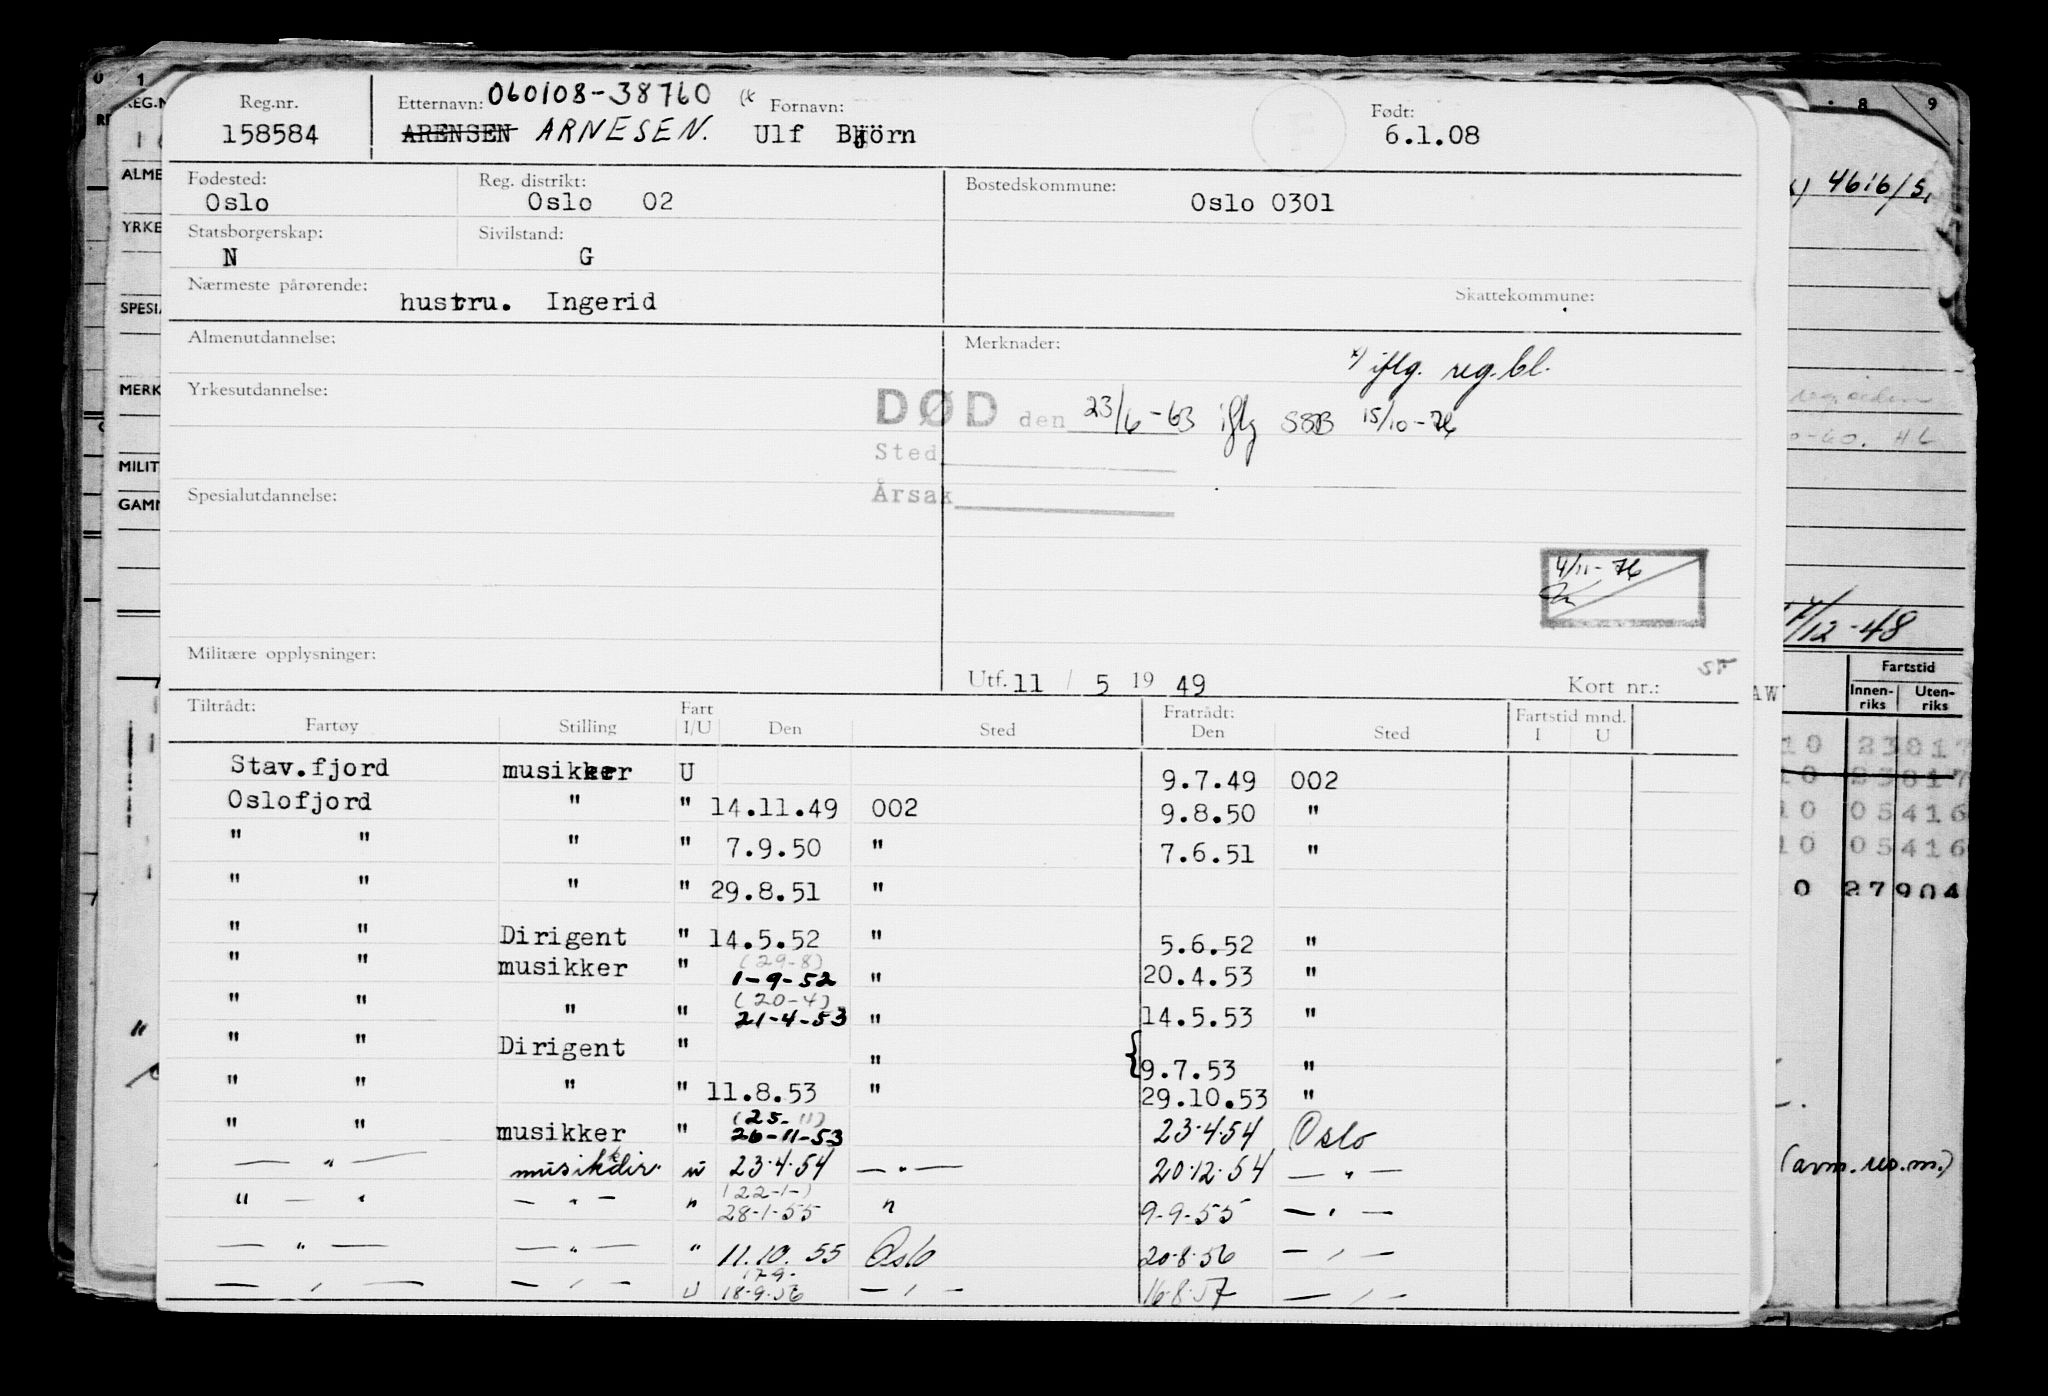 Reg.nr. Etternavn: 060108-38760 (x Fornavn: Født:
158584 ARENSEN ARNESEN. Ulf Björn 6.1.08
Fødested: Reg. distrikt: Bostedskommune:
Oslo Oslo 02 Oslo 0301
Statsborgerskap: Sivilstand:
N G
Nærmeste pårørende: Skattekommune:
hustru. Ingerid
Almenutdannelse: Merknader:
x) iflg. reg.bl.
Yrkesutdannelse:
DØD den 23/6-63 iflg SSB 15/10-76
Sted
Spesialutdannelse: Årsak
4/11-76
Militære opplysninger:
Utf. 11 / 5 19 49 Kort nr.:
Tiltrådt: Fart Fratrådt: Fartstid mnd.
Fartøy Stilling I/U Den Sted Den Sted I U
Stav.fjord musikker U 9.7.49 002
Oslofjord " " 14.11.49 002 9.8.50 "
" " " " 7.9.50 " 7.6.51 "
" " " " 29.8.51 "
" " Dirigent " 14.5.52 " 5.6.52 "
" " musikker " (29-8) 1-9-52 " 20.4.53 "
" " " " (20-4) 21-4-53 " 14.5.53 "
" " Dirigent " " { 9.7.53 "
" " " " 11.8.53 " 29.10.53 "
" " musikker " (25-11) 26-11-53 23.4.54 Oslo
— " — musikkdir. u 23.4.54 — " — 20.12.54 — " —
" — " — " — " (22-1-) 28-1-55 " 9-9-55 — " —
— " — — " — " 11.10.55 Oslo 20.8.56 — " —
— " — — " — U 17-9- 18.9.56 — " — 16.8.57 — " —
0 1
REG.N
ALME
YRKE
SPESIA
MERK
MILIT
GAMN
8 9
4616/5,
0-60. HL
/12-48
Fartstid
Innen-riks Uten-riks
10 23017
10 23017
10 05416
10 05416
0 27904
(avm. res. m.)